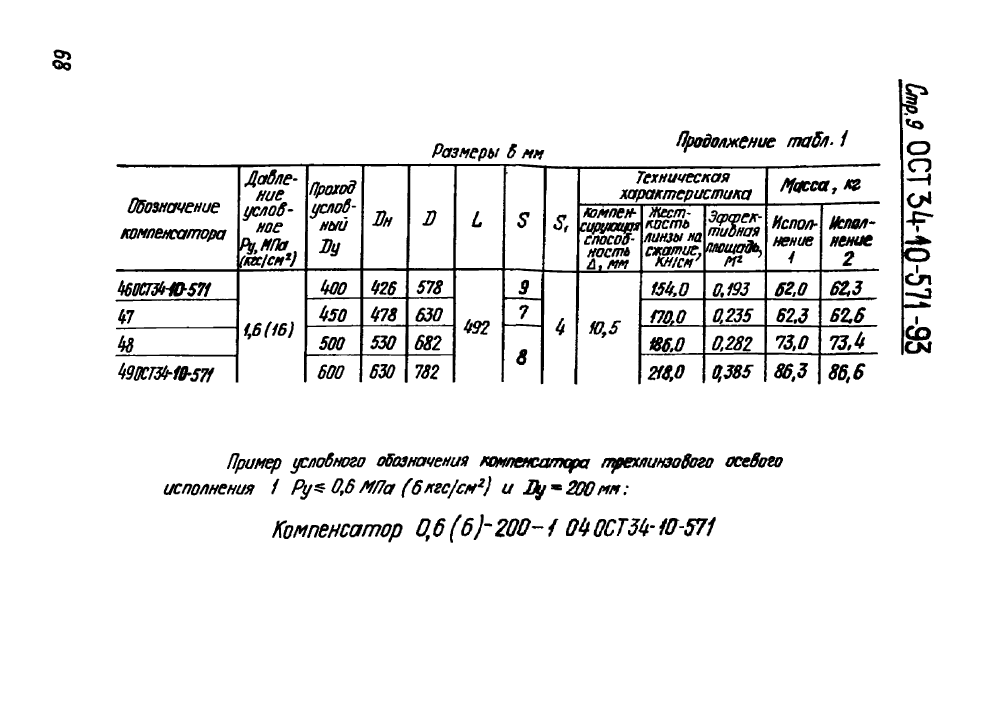 68
Стр. 9 ОСТ 34-10-571-93
Продолжение табл. 1
Размеры в мм
Обозначение компенсатора | Давление условное Ру, МПа (кгс/см²) | Проход условный Ду | Дн | D | L | S | S₁ | Техническая характеристика | Масса, кг
Компенсирующая способность Δ, мм | Жесткость линзы на сжатие, КН/см | Эффективная площадь, м² | Исполнение 1 | Исполнение 2
46 ОСТ34-10-571 | 1,6 (16) | 400 | 426 | 578 | 492 | 9 | 4 | 10,5 | 154,0 | 0,193 | 62,0 | 62,3
47 | 450 | 478 | 630 | 7 | 170,0 | 0,235 | 62,3 | 62,6
48 | 500 | 530 | 682 | 8 | 186,0 | 0,282 | 73,0 | 73,4
49 ОСТ34-10-571 | 600 | 630 | 782 | 218,0 | 0,385 | 86,3 | 86,6
Пример условного обозначения компенсатора трехлинзового осевого
исполнения 1 Ру≤ 0,6 МПа (6 кгс/см²) и Ду = 200 мм:
Компенсатор 0,6 (6)-200-1 04 ОСТ34-10-571